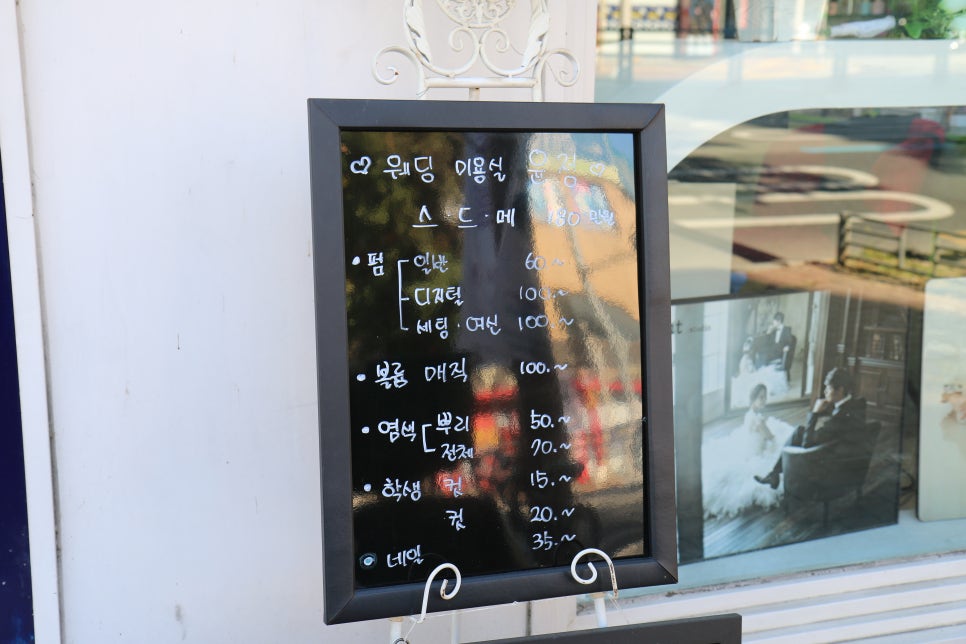 ♡ 웨딩 미용실 윤정 ♡
스·드·메 180만원
• 펌 일반 60.~
디지털 100.~
세팅·여신 100.~
• 볼륨 매직 100.~
• 염색 뿌리 50.~
전체 70.~
• 학생 컷 15.~
컷 20.~
• 네일 35.~